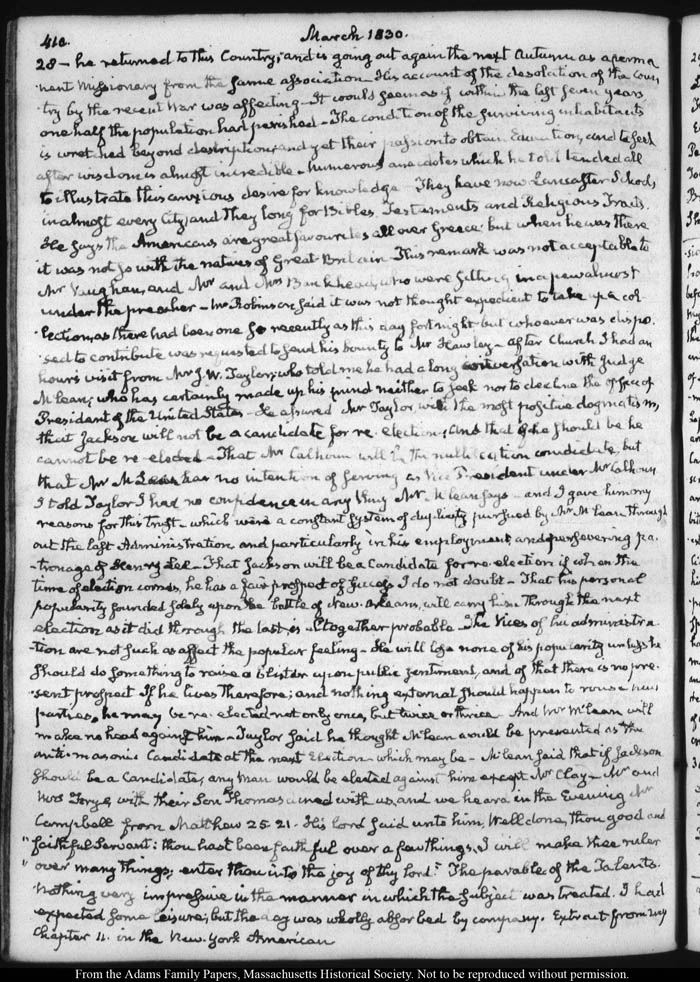 410.
March 1830.
28 — he returned to this Country; and is going out again the next Autumn as a perma
nent Missionary from the same association — His account of the desolation of the Coun
try by the recent War was affecting — It would seem as if within the last seven years
one half the population had perished — The condition of the surviving inhabitants
is wretched beyond description; and yet their passion to obtain Education, and to seek
after wisdom is almost incredible — Numerous anecdotes which he told tended all
to illustrate this anxious desire for knowledge. They have now Lancaster Schools
in almost every City; and they long for Bibles, Testaments and Religious Tracts.
He says the Americans are great favourites all over Greece. but when he was there
it was not so with the natives of Great-Britain This remark was not acceptable to
Mr Vaughan, and Mr and Mrs Bankhead, who were sitting in a pew almost
under the preacher — Mr Robinson said it was not thought expedient to take up a col
lection, as there had been one so recently as this day fortnight but whoever was dispo
sed to contribute was requested to send his bounty to Mr Hawley — After Church I had an
hour's visit from Mr J. W. Taylor; who told me he had a long conversation with Judge
McLean; who has certainly made up his mind neither to seek nor to decline the Office of
President of the United States — He assured Mr Taylor with the most positive dogmatism,
that Jackson will not be a candidate for re-election; and that if he should be he
cannot be re-elected — That Mr Calhoun will be the nullification candidate, but
that Mr McLean has no intention of serving as Vice President under Mr Calhoun
I told Taylor I had no confidence in any thing Mr McLean says — and I gave him my
reasons for this trust — which were a constant system of duplicity pursued by Mr McLean through
out the last Administration, and particularly in his employment, and persevering pa
tronage of Henry Lee — That Jackson will be a Candidate for re-election if when the
time of election comes, he has a fair prospect of success I do not doubt — That his personal
popularity founded solely upon the battle of New-Orleans, will carry him through the next
election as it did through the last, is altogether probable — The Vices of his administra
tion are not such as affect the popular feeling — He will lose none of his popularity unless he
should do something to raise a blister upon public sentiment, and of that there is no pre
sent prospect If he lives therefore; and nothing external should happen to rouse new
parties, he may be re-elected not only once, but twice or thrice — And Mr McLean will
make no head against him — Taylor said he thought McLean would be presented as the
anti-masonic Candidate at the next Election — which may be — McLean said that if Jackson
should be a Candidate, any man would be elected against him except Mr Clay — Mr and
Mrs with their Son Thomas dined with us, and we heard in the Evening Mr
Campbell from Matthew 25. 21. His lord said unto him, Well done, thou good and
"faithful Servant: thou hast been faithful over a few things, I will make thee ruler
"over many things; enter thou into the joy of thy lord." The parable of the Talents.
Nothing very impressive in the manner in which the subject was treated. I had
expected some leisure; but the day was wholly absorbed by company. Extract from my
Chapter 4. in the New-York American
From the Adams Family Papers, Massachusetts Historical Society. Not to be reproduced without permission.